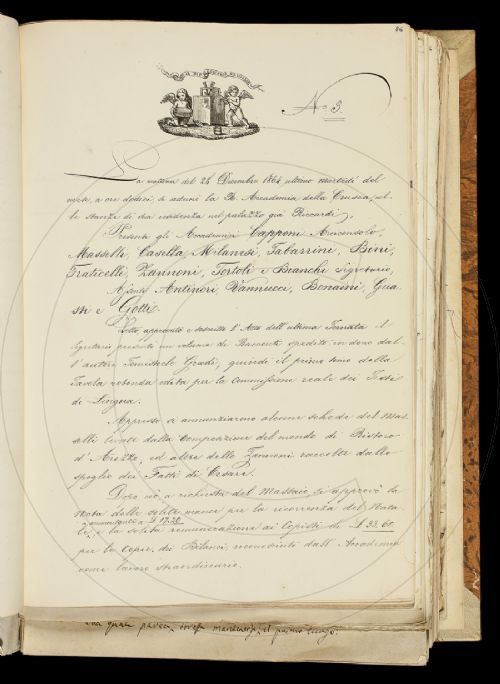 86
No 3.
La mattina del 24 Dicembre 1864 ultimo martedì del
mese, a ore dodici si adunò la R. Accademia della Crusca, nel-
le stanze di sua residenza nel palazzo già Riccardi.
Presenti gli Accademici Capponi Arciconsolo,
Masselli, Casella, Milanesi, Tabarrini, Bini,
Fraticelli, Zannoni, Tortoli e Bianchi Segretario,
Assenti Antinori, Vannucci, Bonaini, Gua-
sti e Gotti.
Letto approvato e soscritto l'Atto dell'ultima Tornata il
Segretario presentò un volume de' Bancroft spedito in dono dal-
l'autore quindi il primo tomo della
Tavola rotonda edita per la Commissione reale dei Testi
di Lingua.
Appresso si annunziarono alcune schede del Mas-
selli levate dalla Composizione del mondo di Ristoro
d'Arezzo, ed altre dello Zannoni raccolte dallo
spoglio dei Fatti di Cesare.
Dopo ciò a richiesta del Massaio, si approvò la
nota delle solite mance per la ricorrenza del Nata-
ammontante a £ 17.28
le, e la solita remunerazione ai Copisti di £ 33.60.
per le copie dei Bilanci, riconosciute dall'Accademia
come lavoro straordinario.